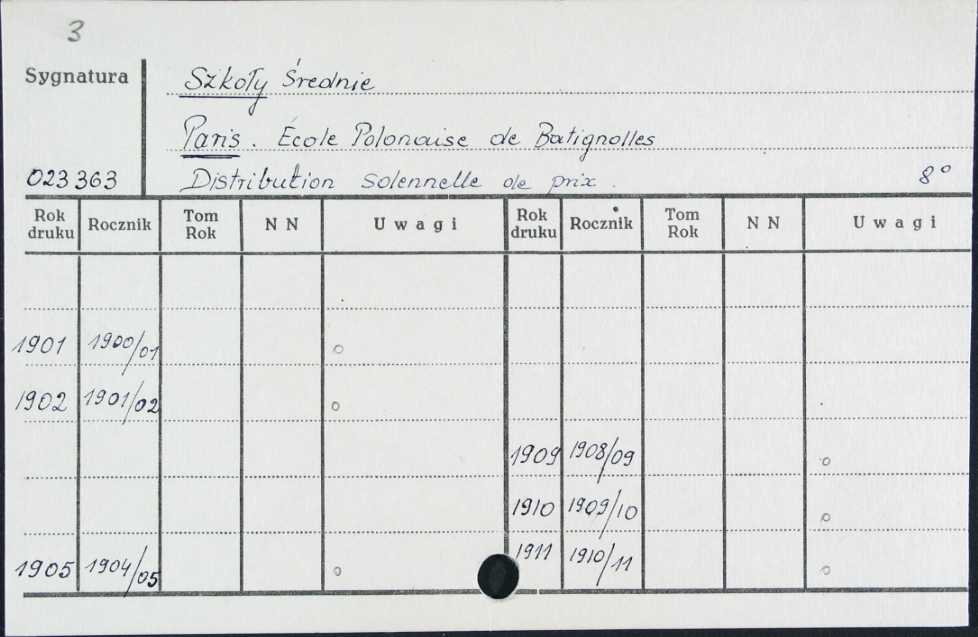 3
Sygnatura
Szkoły Średnie
Paris. École Polonaise de Batignolles
023363 Distribution solennelle de prix. 8°
Rok druku Rocznik Tom Rok NN Uwagi Rok druku Rocznik Tom Rok NN Uwagi
1901 1900/01 o
1902 1901/02 o
1909 1908/09 o
1910 1909/10 o
1905 1904/05 o 1911 1910/11 o